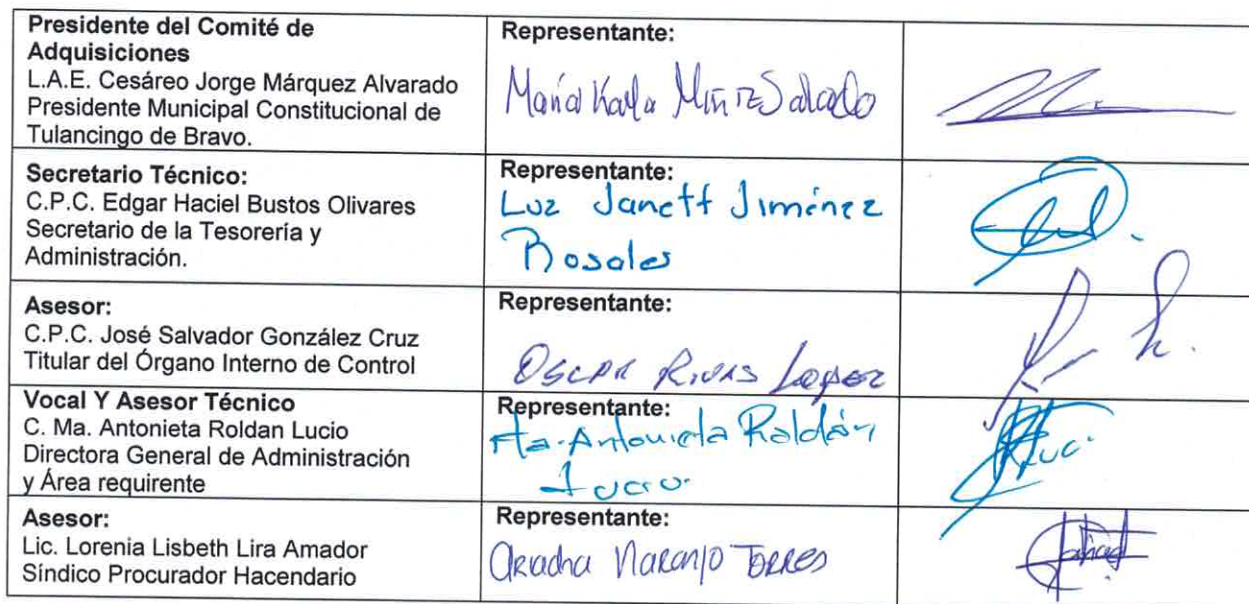 Presidente del Comité de
Adquisiciones
L.A.E. Cesáreo Jorge Márquez Alvarado
Presidente Municipal Constitucional de
Tulancingo de Bravo.
Representante:
María Karla Salcedo
Secretario Técnico:
C.P.C. Edgar Haciel Bustos Olivares
Secretario de la Tesorería y
Administración.
Representante:
Luz Janett Jiménez
Rosales
Asesor:
C.P.C. José Salvador González Cruz
Titular del Órgano Interno de Control
Representante:
OSCAR RIVAS LOPEZ
Vocal Y Asesor Técnico
C. Ma. Antonieta Roldan Lucio
Directora General de Administración
y Área requirente
Representante:
Ma. Antonieta Roldán
Lucio
Asesor:
Lic. Lorenia Lisbeth Lira Amador
Síndico Procurador Hacendario
Representante:
Naranjo TORRES